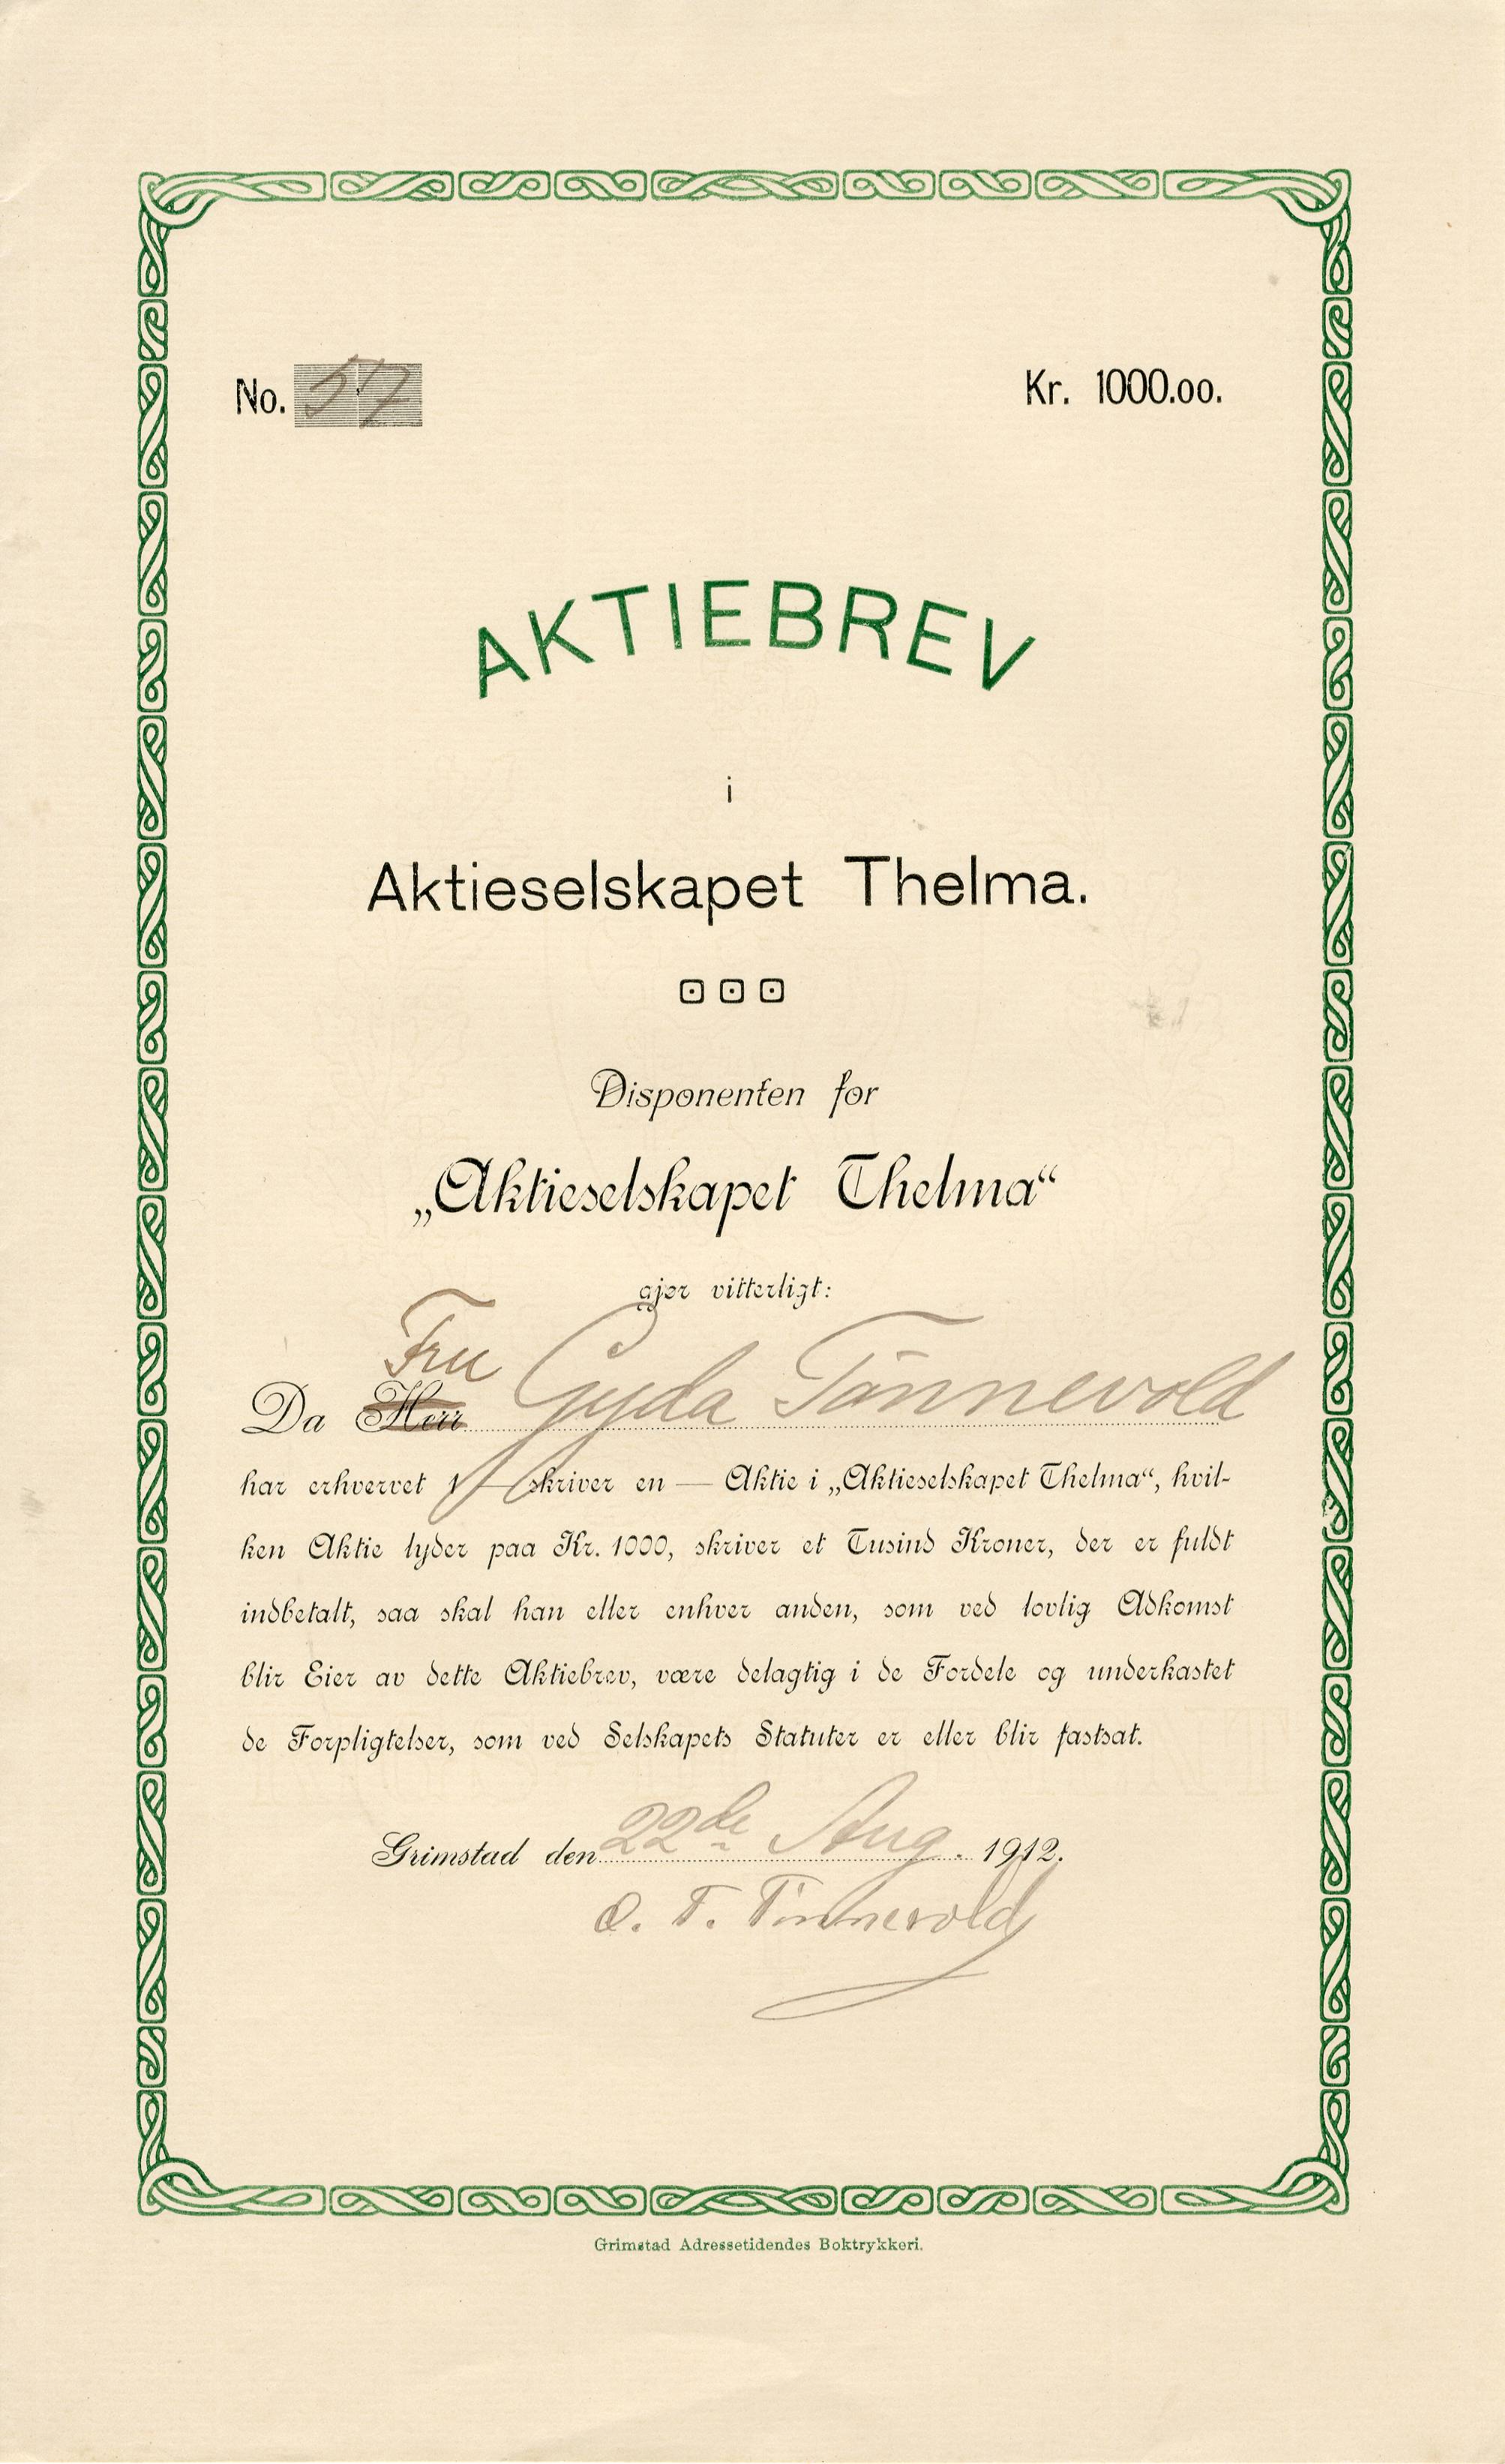 No. 57
Kr. 1000.00.
AKTIEBREV
i
Aktieselskapet Thelma.
Disponenten for
„Aktieselskapet Thelma“
gjør vitterligt:
Fru
Da Herr Gyda Tønnevold
har erhvervet 1 — skriver en — Aktie i „Aktieselskapet Thelma“, hvil-
ken Aktie lyder paa Kr. 1000, skriver et Tusind Kroner, der er fuldt
indbetalt, saa skal han eller enhver anden, som ved lovlig Adkomst
blir Eier av dette Aktiebrev, være delagtig i de Fordele og underkastet
de Forpligtelser, som ved Selskapets Statuter er eller blir fastsat.
Grimstad den 22de Aug. 1912.
O. T. Tønnevold
Grimstad Adressetidendes Boktrykkeri.